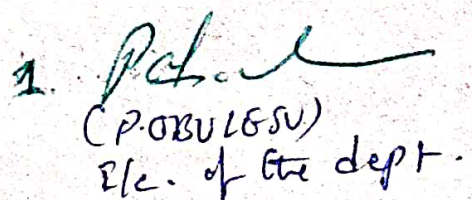 1.
(P.OBULESU)
I/c. of the dept.